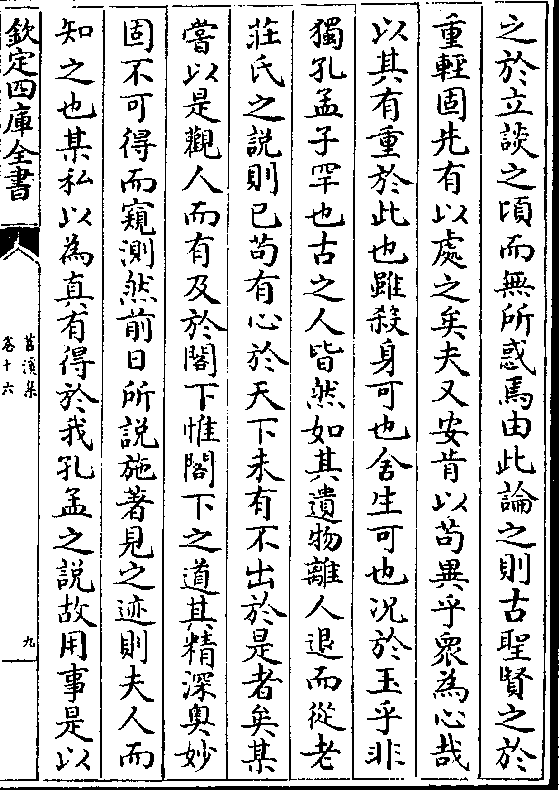 之於立談之頃而無所惑焉由此論之則古聖賢之於
重輕固先有以處之矣夫又安肯以苟異乎衆為心哉
以其有重於此也雖殺身可也舍生可也况於玉乎非
獨孔孟子罕也古之人皆然如其遺物離人退而從老
莊氏之說則已苟有心於天下未有不出於是者矣某
嘗以是觀人而有及於閣下惟閣下之道其精深奥妙
固不可得而窺測然前日所說施著見之迹則夫人而
知之也某私以為真有得於我孔孟之說故用事是以
欽定四庫全書
苕溪集
卷十六
九